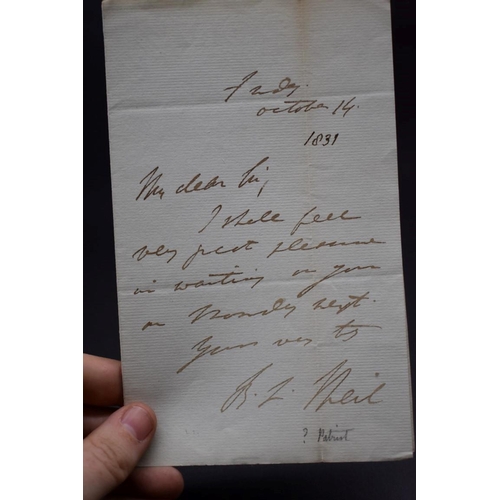 Friday.
October 14.
1831
My dear Sir,
I shall feel
very great pleasure
in waiting on you
on Monday next.
Yours very ty
R. L.
? Patriot